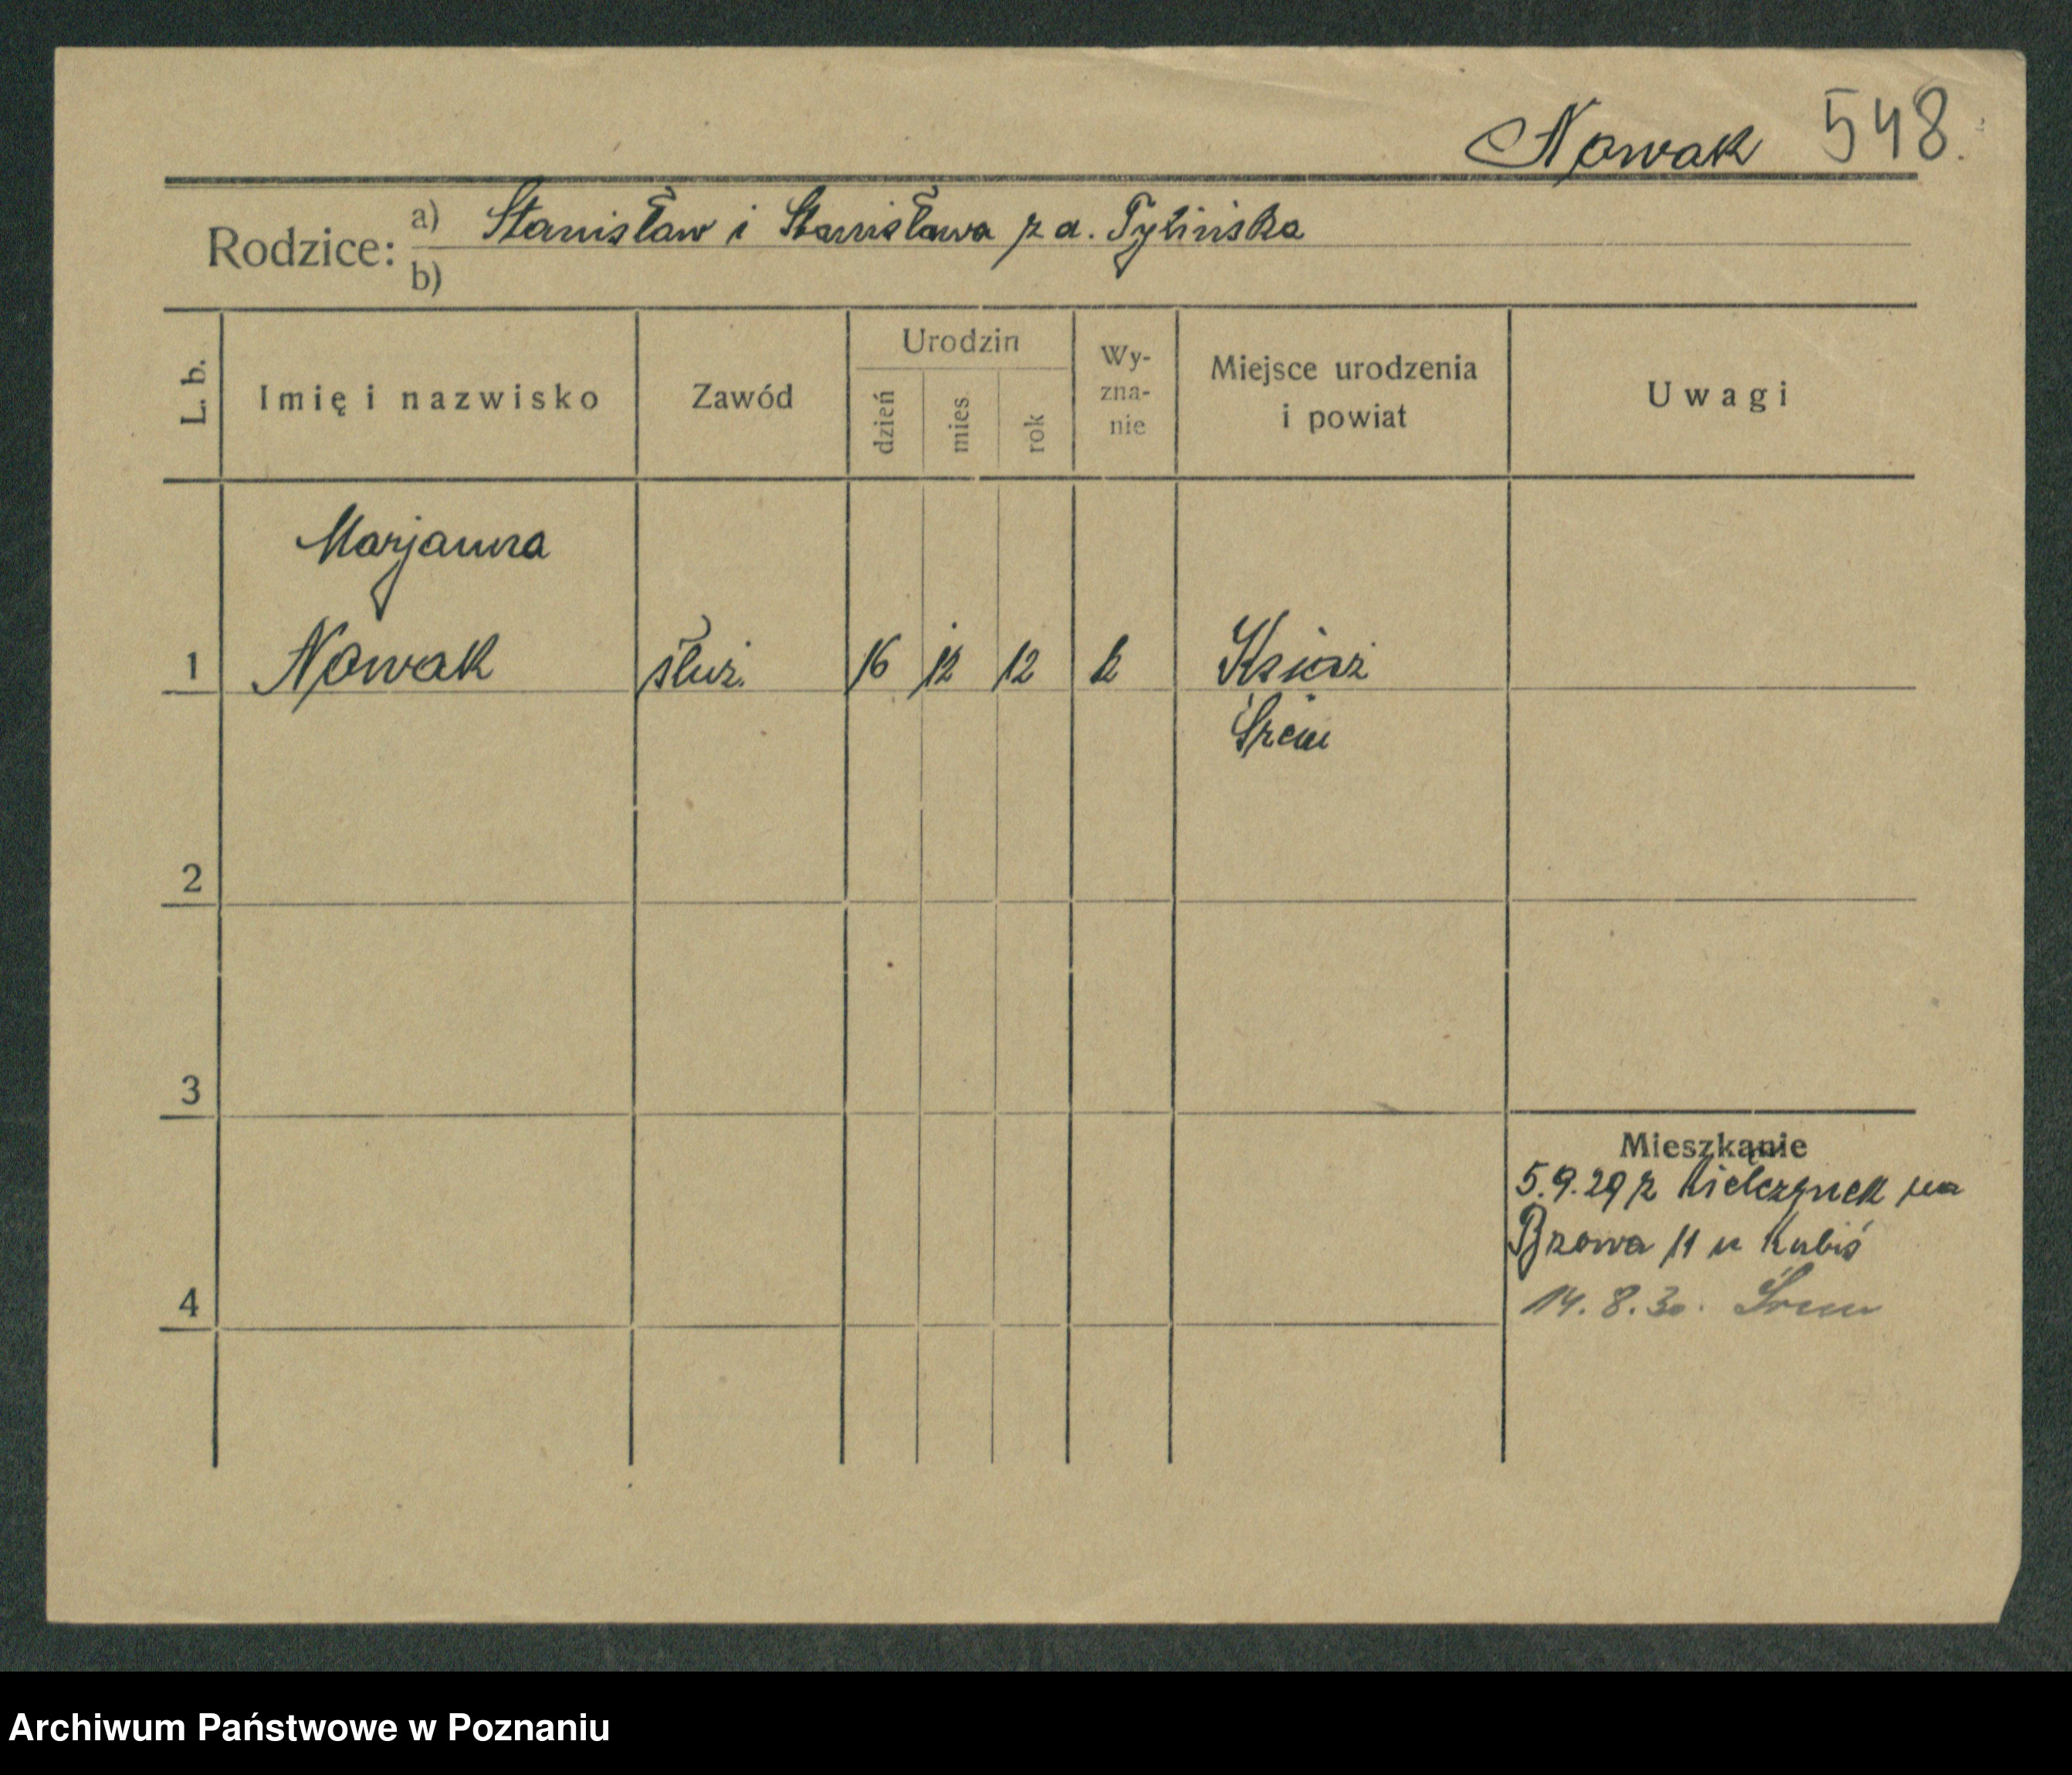 Nowak 548.
Rodzice: a) Stanisław i Stanisława z d.
b)
L. b.
Imię i nazwisko
Zawód
Urodzin
dzień
mies.
rok
Wy-
zna-
nie
Miejsce urodzenia
i powiat
Uwagi
Marjanna
1 Nowak służ. 16 12 12 k Książ
Śrem
2
3
4
Mieszkanie
5.9.29 z Kielczynek na
11 u Kubiś
14.8.30. Śrem
Archiwum Państwowe w Poznaniu